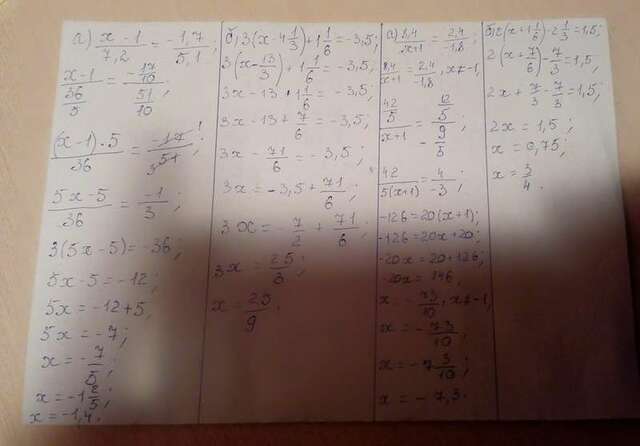 а) (x-1)/7,2 = -1,7/5,1;
(x-1)/(36/5) = (-17/10)/(51/10)
((x-1)·5)/36 = -17/51;
(5x-5)/36 = -1/3;
3(5x-5) = -36;
5x-5 = -12;
5x = -12+5,
5x = -7;
x = -7/5;
x = -1 2/5;
x = -1,4.
б) 3(x-4 1/3)+1 1/6 = -3,5;
3(x-13/3)+1 1/6 = -3,5;
3x-13+1 1/6 = -3,5;
3x-13+7/6 = -3,5;
3x-71/6 = -3,5;
3x = -3,5+71/6;
3x = -7/2+71/6;
3x = 25/3;
x = 25/9.
а) 8,4/(x+1) = 2,4/-1,8;
8,4/(x+1) = 2,4/-1,8, x≠-1,
(42/5)/(x+1) = (12/5)/(-9/5)
42/(5(x+1)) = 4/-3;
-126 = 20(x+1);
-126 = 20x+20;
-20x = 20+126;
-20x = 146,
x = -73/10, x≠-1,
x = -73/10;
x = -7 3/10;
x = -7,3.
б) 2(x+1 1/6)-2 1/3 = 1,5;
2(x+7/6)-7/3 = 1,5,
2x+7/3-7/3 = 1,5;
2x = 1,5;
x = 0,75;
x = 3/4.